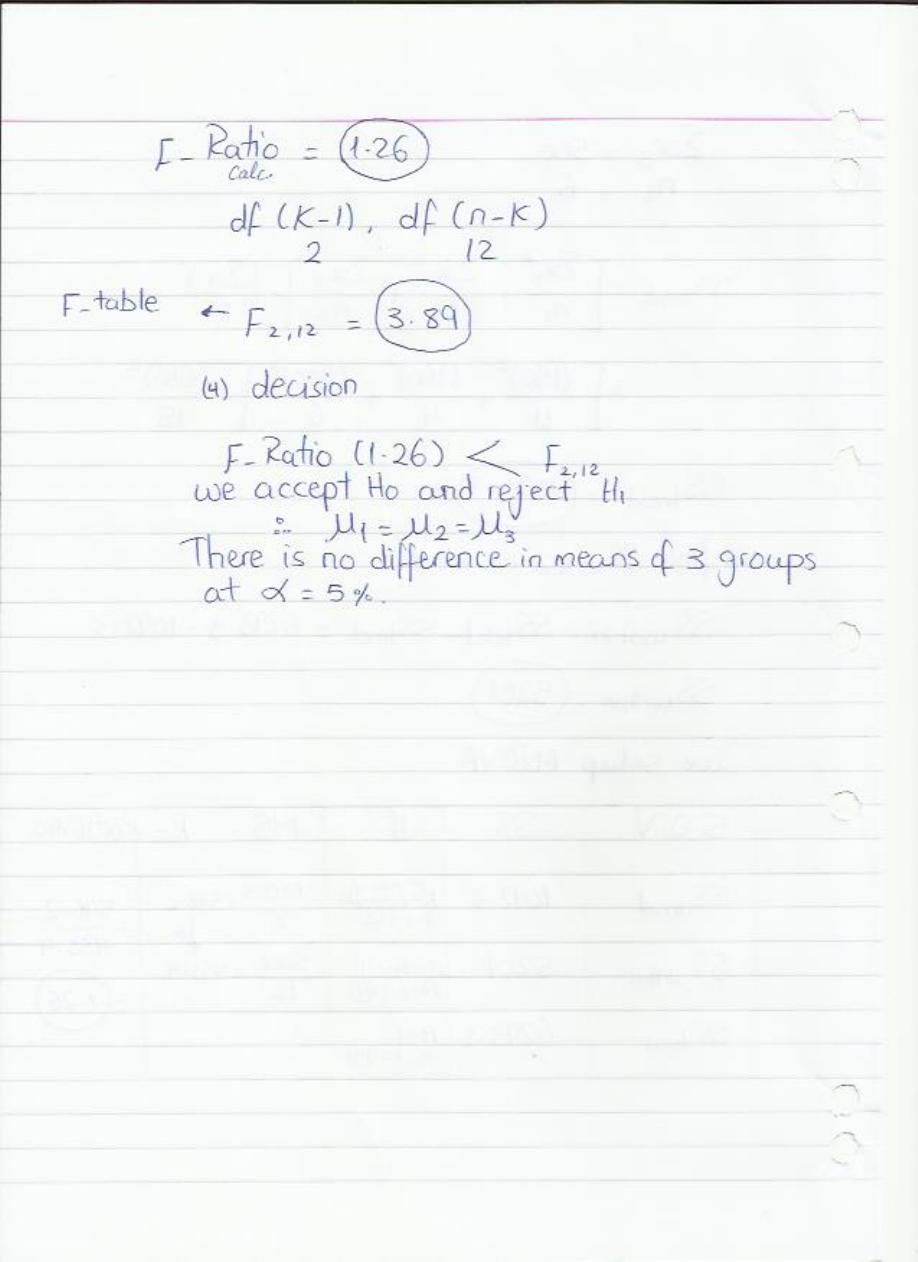 F-Ratio = 1.26
Calc.
df (K-1), df (n-K)
2 12
F-table ← F2,12 = 3.89
(4) decision
F-Ratio (1.26) < F2,12
we accept Ho and reject H1
∴ μ1 = μ2 = μ3
There is no difference in means of 3 groups
at α = 5%.